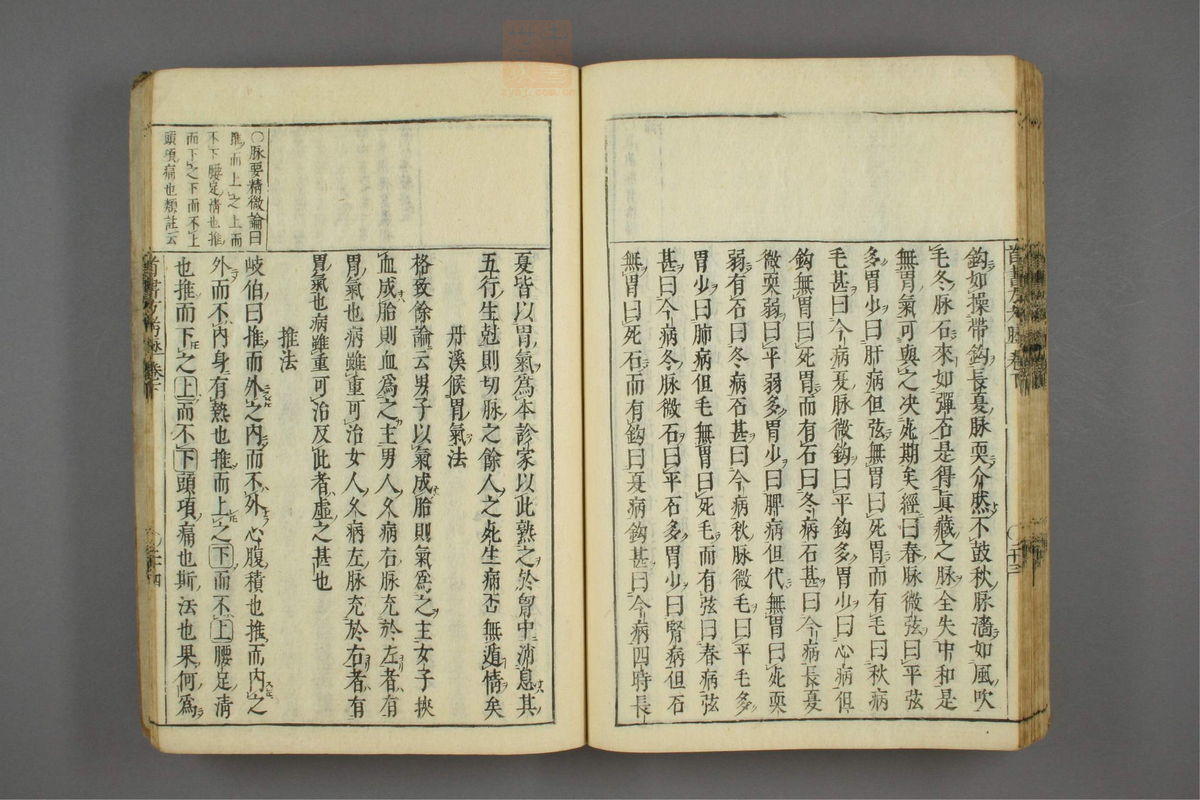 鈎如操帶鈎長夏脉耎介然不鼓秋脉濇如風吹
毛冬脉石來如彈石是得眞藏之脉全失中和是
無胃氣可與之决死期矣經曰春脉微弦曰平弦
多胃少曰肝病但弦無胃曰死胃而有毛曰秋病
毛甚曰今病夏脉微鈎曰平鈎多胃少曰心病但
鈎無胃曰死胃而有石曰冬病石甚曰今病長夏
微耎弱曰平弱多胃少曰脾病但代無胃曰死耎
弱有石曰冬病石甚曰今病秋脉微毛曰平毛多
胃少曰肺病但毛無胃曰死毛而有弦曰春病弦
甚曰今病冬脉微石曰平石多胃少曰腎病但石
無胃曰死石而有鈎曰夏病鈎甚曰今病四時長
夏皆以胃氣爲本診家以此熟之於胷中消息其
五行生尅則切脉之餘人之死生病否無遁情矣
丹溪候胃氣法
格致餘論云男子以氣成胎則氣爲之主女子挾
血成胎則血爲之主男人久病右脉充於左者有
胃氣也病雖重可治女人久病左脉充於右者有
胃氣也病雖重可治反此者虛之甚也
推法
岐伯曰推而外之内而不外心腹積也推而内之
外而不内身有熱也推而上之下而不上腰足清
也推而下之上而不下頭項痛也斯法也果何爲
〇脉要精微論曰
推而上之上而
不下腰足清也推
而下之下而不上
頭項痛也類註云
卷下
二十三
卷下
二十四